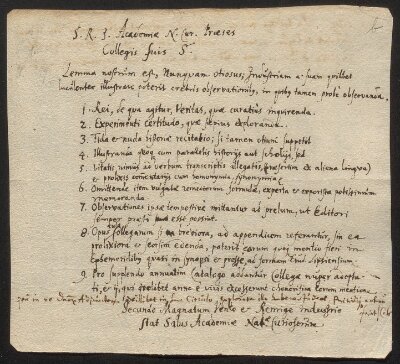 S. R. I. Academiæ N. Cur. Præses
Collegis suis S.
Lemma nostrum est, Nunquam otiosus; Industriam suam quilibet
luculenter illustrare poterit crebris observationib, in quibus tamen probè observanda.
1. Rei, de qua agitur, Veritas, quæ curatius inquirenda.
2. Experimenti certitudo, quæ sæpius exploranda.
3. Fida et nuda historiæ recitatio; si tamen otium suppetit
4. Illustranda quoque cum parallelis historijs aut scholijs, sed
5. Vitatis nimis ad verbum transcriptis allegatis, (præsertim ex aliena lingua)
et prolixis comentarijs cum homonymia, synonymia;
6. Omittendæ item vulgatæ remediorum formulæ, experta et
memoranda.
7. Observationes ipsæ tempestivè mittantur ad prelum, ut Editori
semper præsto esse possint.
8. Opuscula Collegarum si breviora, ad appendicem referantur, sin ea
prolixiora et seorsim edenda, poterit eorum quoque mentio fieri in
Ephemeridibus quasi in synopsi et
9. Pro supplendo annuatim Catalogo addantur Collegæ nuper
ti, et ij, qui quolibet anno è vivis excesserunt honorifica eorum mentione
Secundo Magnatum Vento et Remige industrio
Stat Salus Academiæ Nat. Curiosorum.